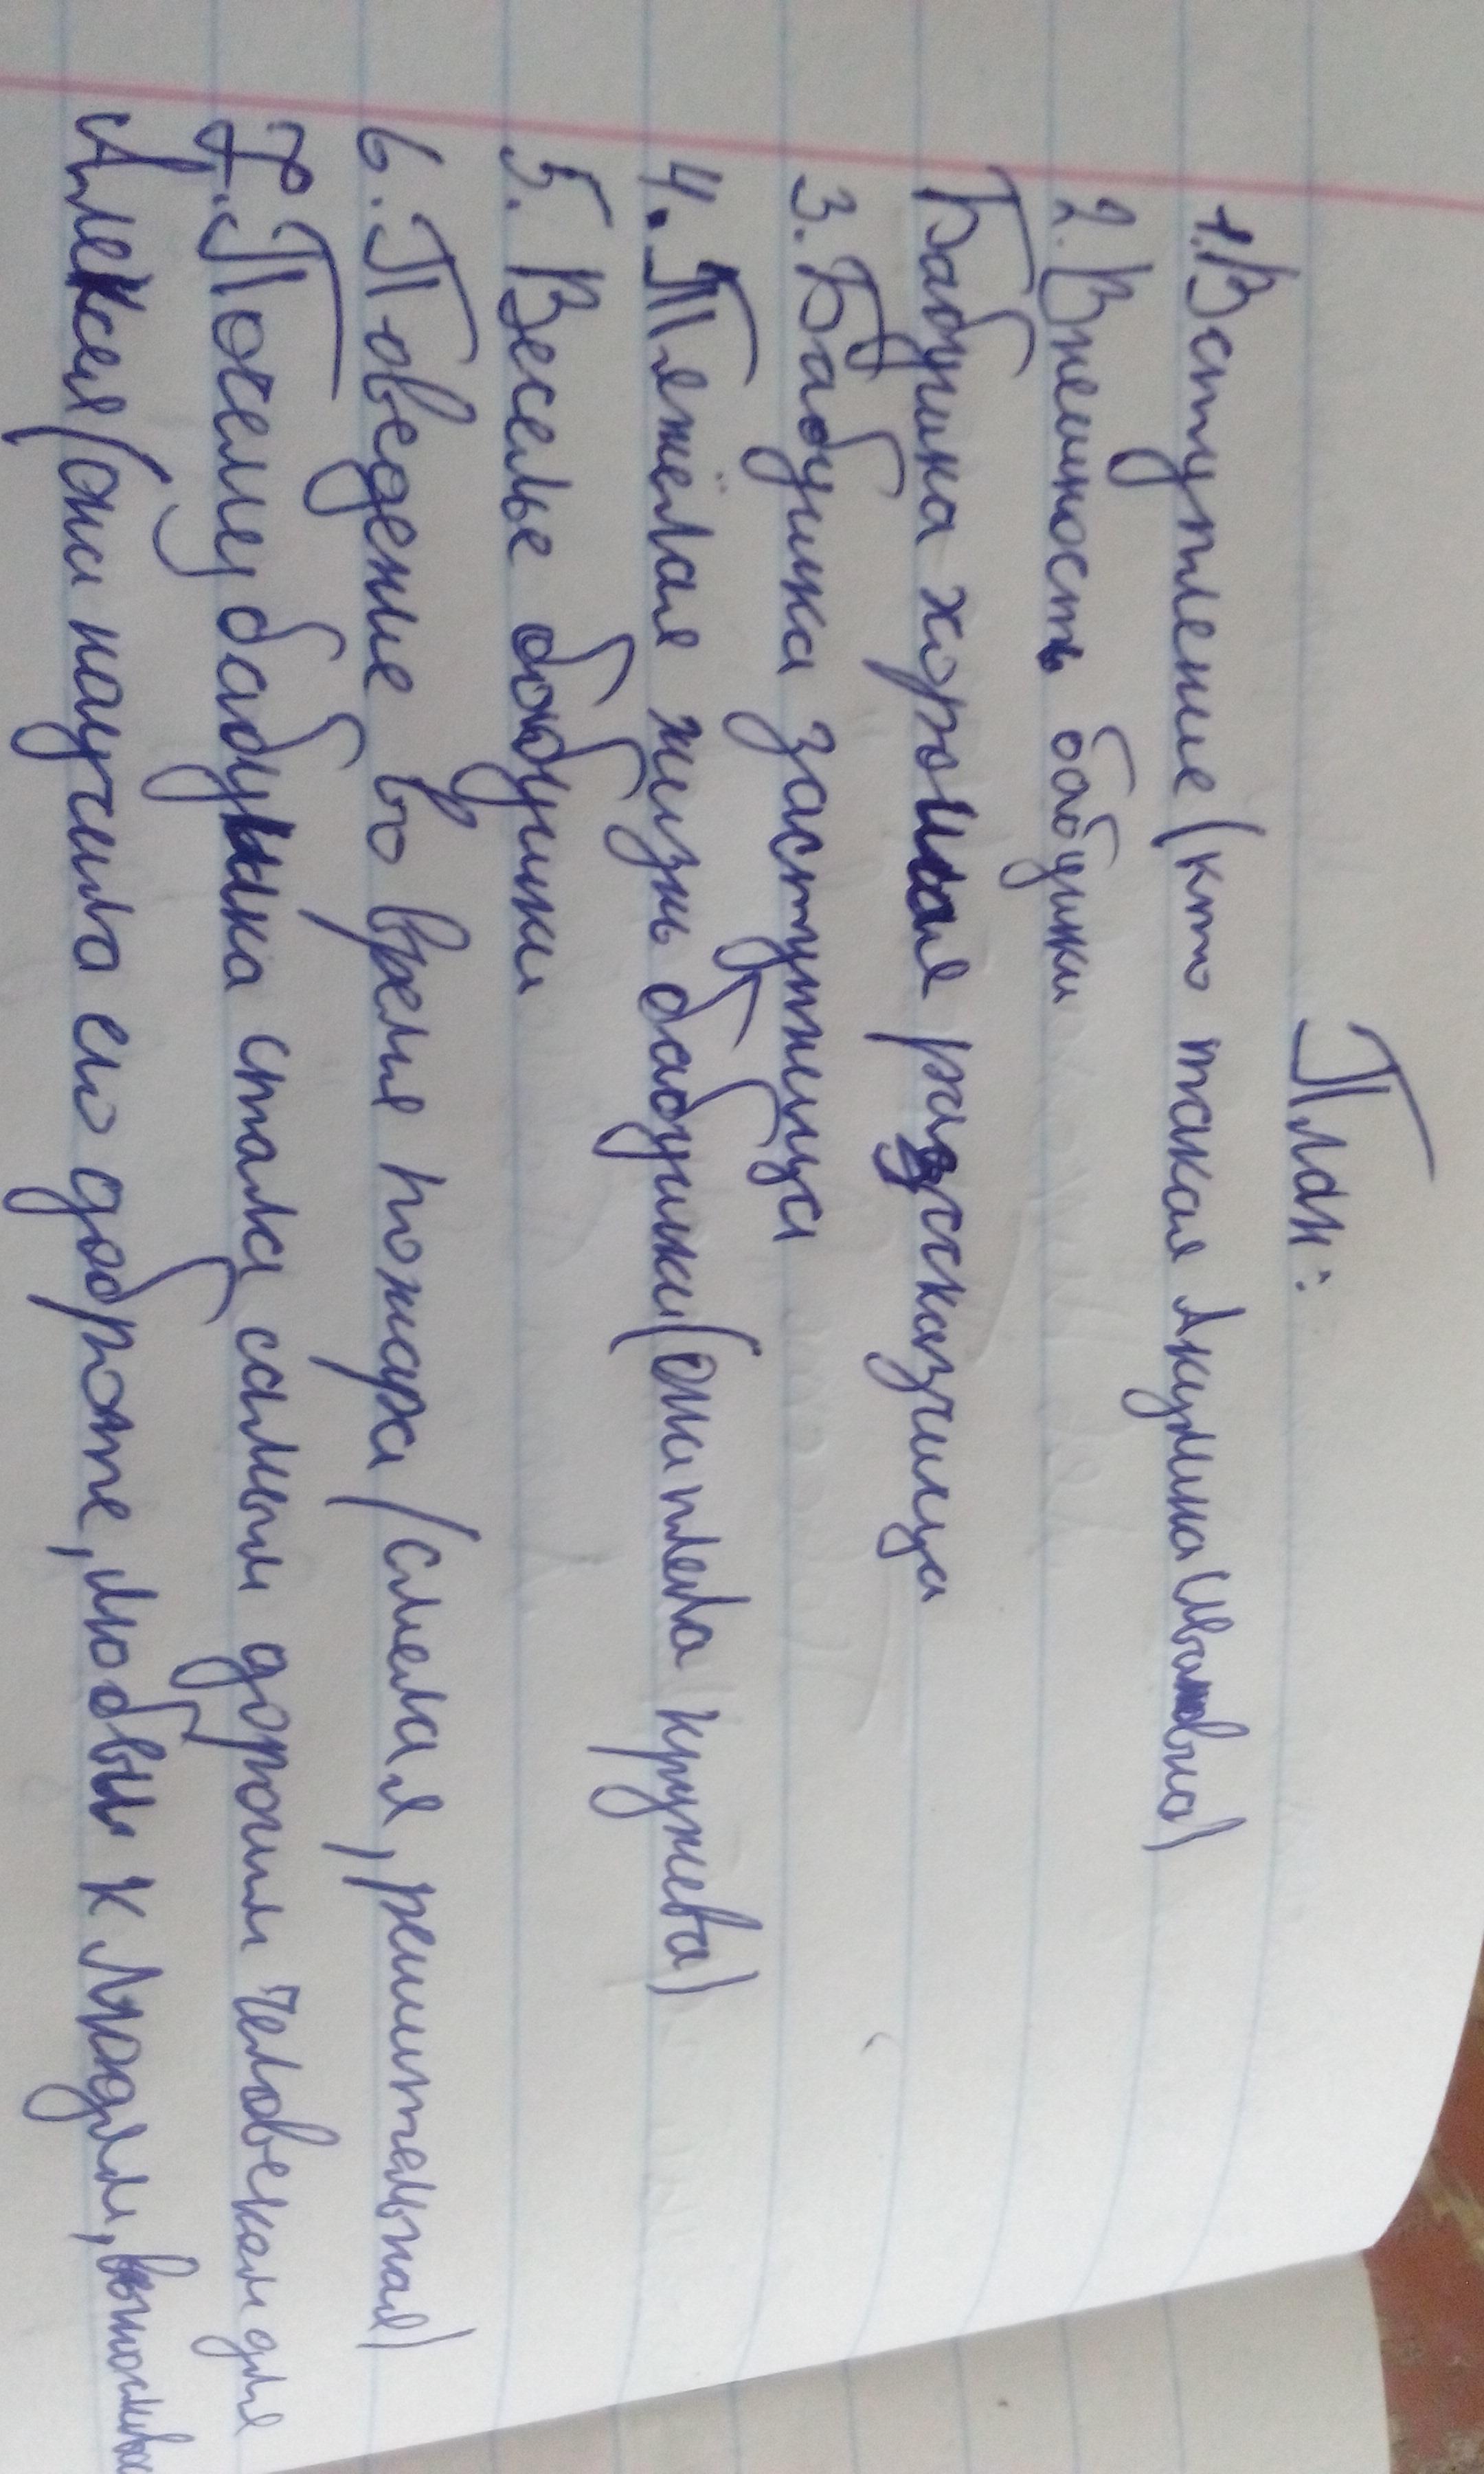 План:
1. Вступление (кто такая Акулина Ивановна)
2. Внешность бабушки
Бабушка хорошая рассказчица
3. Бабушка заступница
4. Тяжёлая жизнь бабушки (она плела кружева)
5. Веселье бабушки
6. Поведение во время пожара (смелая, решительная)
7. Почему бабушка стала самым дорогим человеком для
Алексея (она научила его доброте, любви к людям,